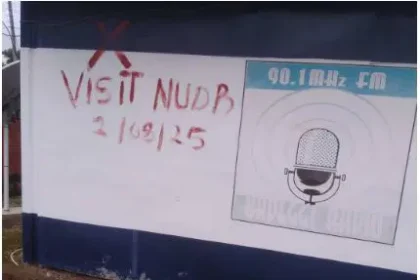 X
VISIT NUDB
2/08/25
90.1MHz FM